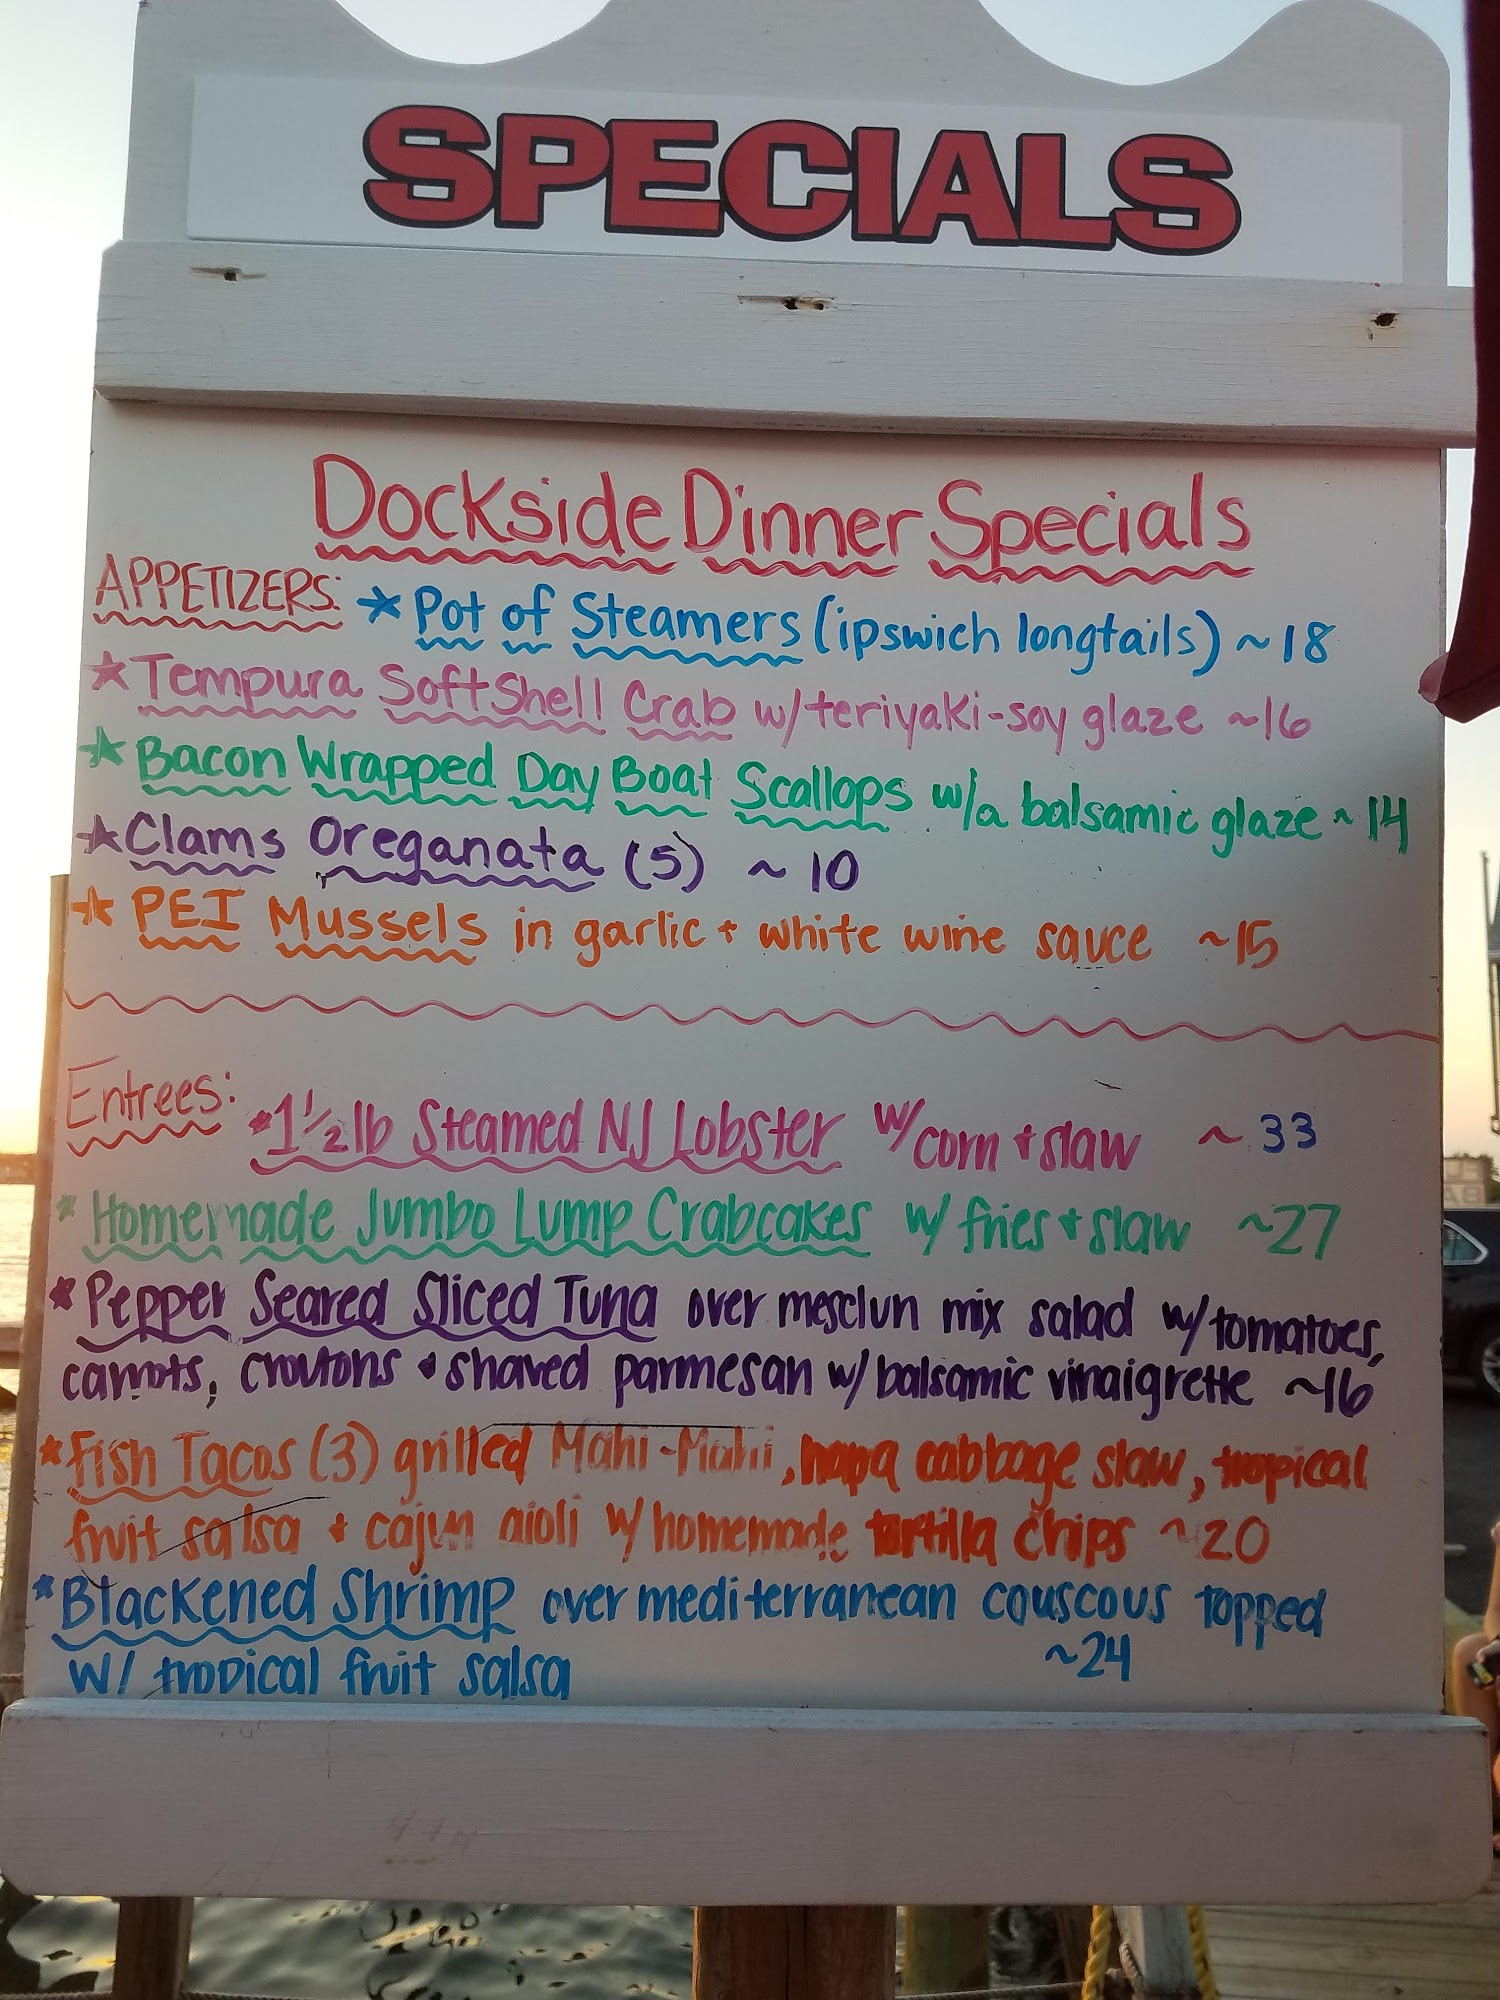 SPECIALS
Dockside Dinner Specials
APPETIZERS: * Pot of Steamers (ipswich longtails) ~18
* Tempura Soft Shell Crab w/teriyaki-soy glaze ~16
* Bacon Wrapped Day Boat Scallops w/a balsamic glaze ~14
* Clams Oreganata (5) ~10
* PEI Mussels in garlic + white wine sauce ~15
Entrees: *1½ lb Steamed NJ Lobster w/corn + slaw ~33
* Homemade Jumbo Lump Crabcakes w/ fries + slaw ~27
* Pepper Seared Sliced Tuna over mesclun mix salad w/tomatoes,
carrots, croutons + shaved parmesan w/balsamic vinaigrette ~16
* Fish Tacos (3) grilled Mahi-Mahi, napa cabbage slaw, tropical
fruit salsa + cajun aioli w/homemade tortilla chips ~20
* Blackened Shrimp over mediterranean couscous topped
w/ tropical fruit salsa ~24